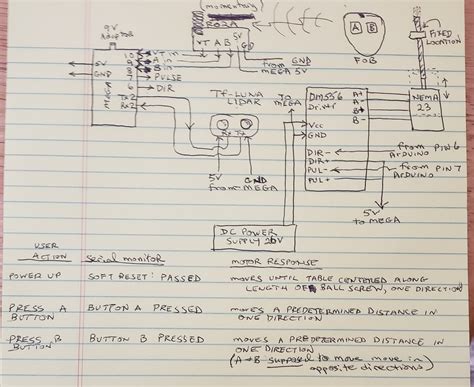 (momentary)
R03A
9V
Adaptor
VT A B 5V GD
5V
GND
MEGA
10 VT IN
9 A IN
8 B IN
7 PULSE
6 DIR
TX2
RX2
from GND
from 5V
MEGA
A B
FOB
FIXED
LOCATION
TF-LUNA
LIDAR
Rx Tx
5V GND
from MEGA
to
MEGA
DM556
Driver
Vcc
GND
DIR-
DIR+
PUL-
PUL+
A+
A-
B+
B-
NEMA
23
from PIN 6
Arduino
from PIN 7
Arduino
5V
to MEGA
DC POWER
SUPPLY 20V
USER
ACTION Serial monitor MOTOR RESPONSE
POWER UP SOFT RESET: PASSED moves UNTIL TABLE CENTERED ALONG
LENGTH OF BALL SCREW, ONE DIRECTION
PRESS A BUTTON A PRESSED moves A PREDETERMINED DISTANCE IN
BUTTON ONE DIRECTION
PRESS B BUTTON B PRESSED moves A PREDETERMINED DISTANCE IN
BUTTON ONE DIRECTION
(A → B supposed to move move in
opposite directions)